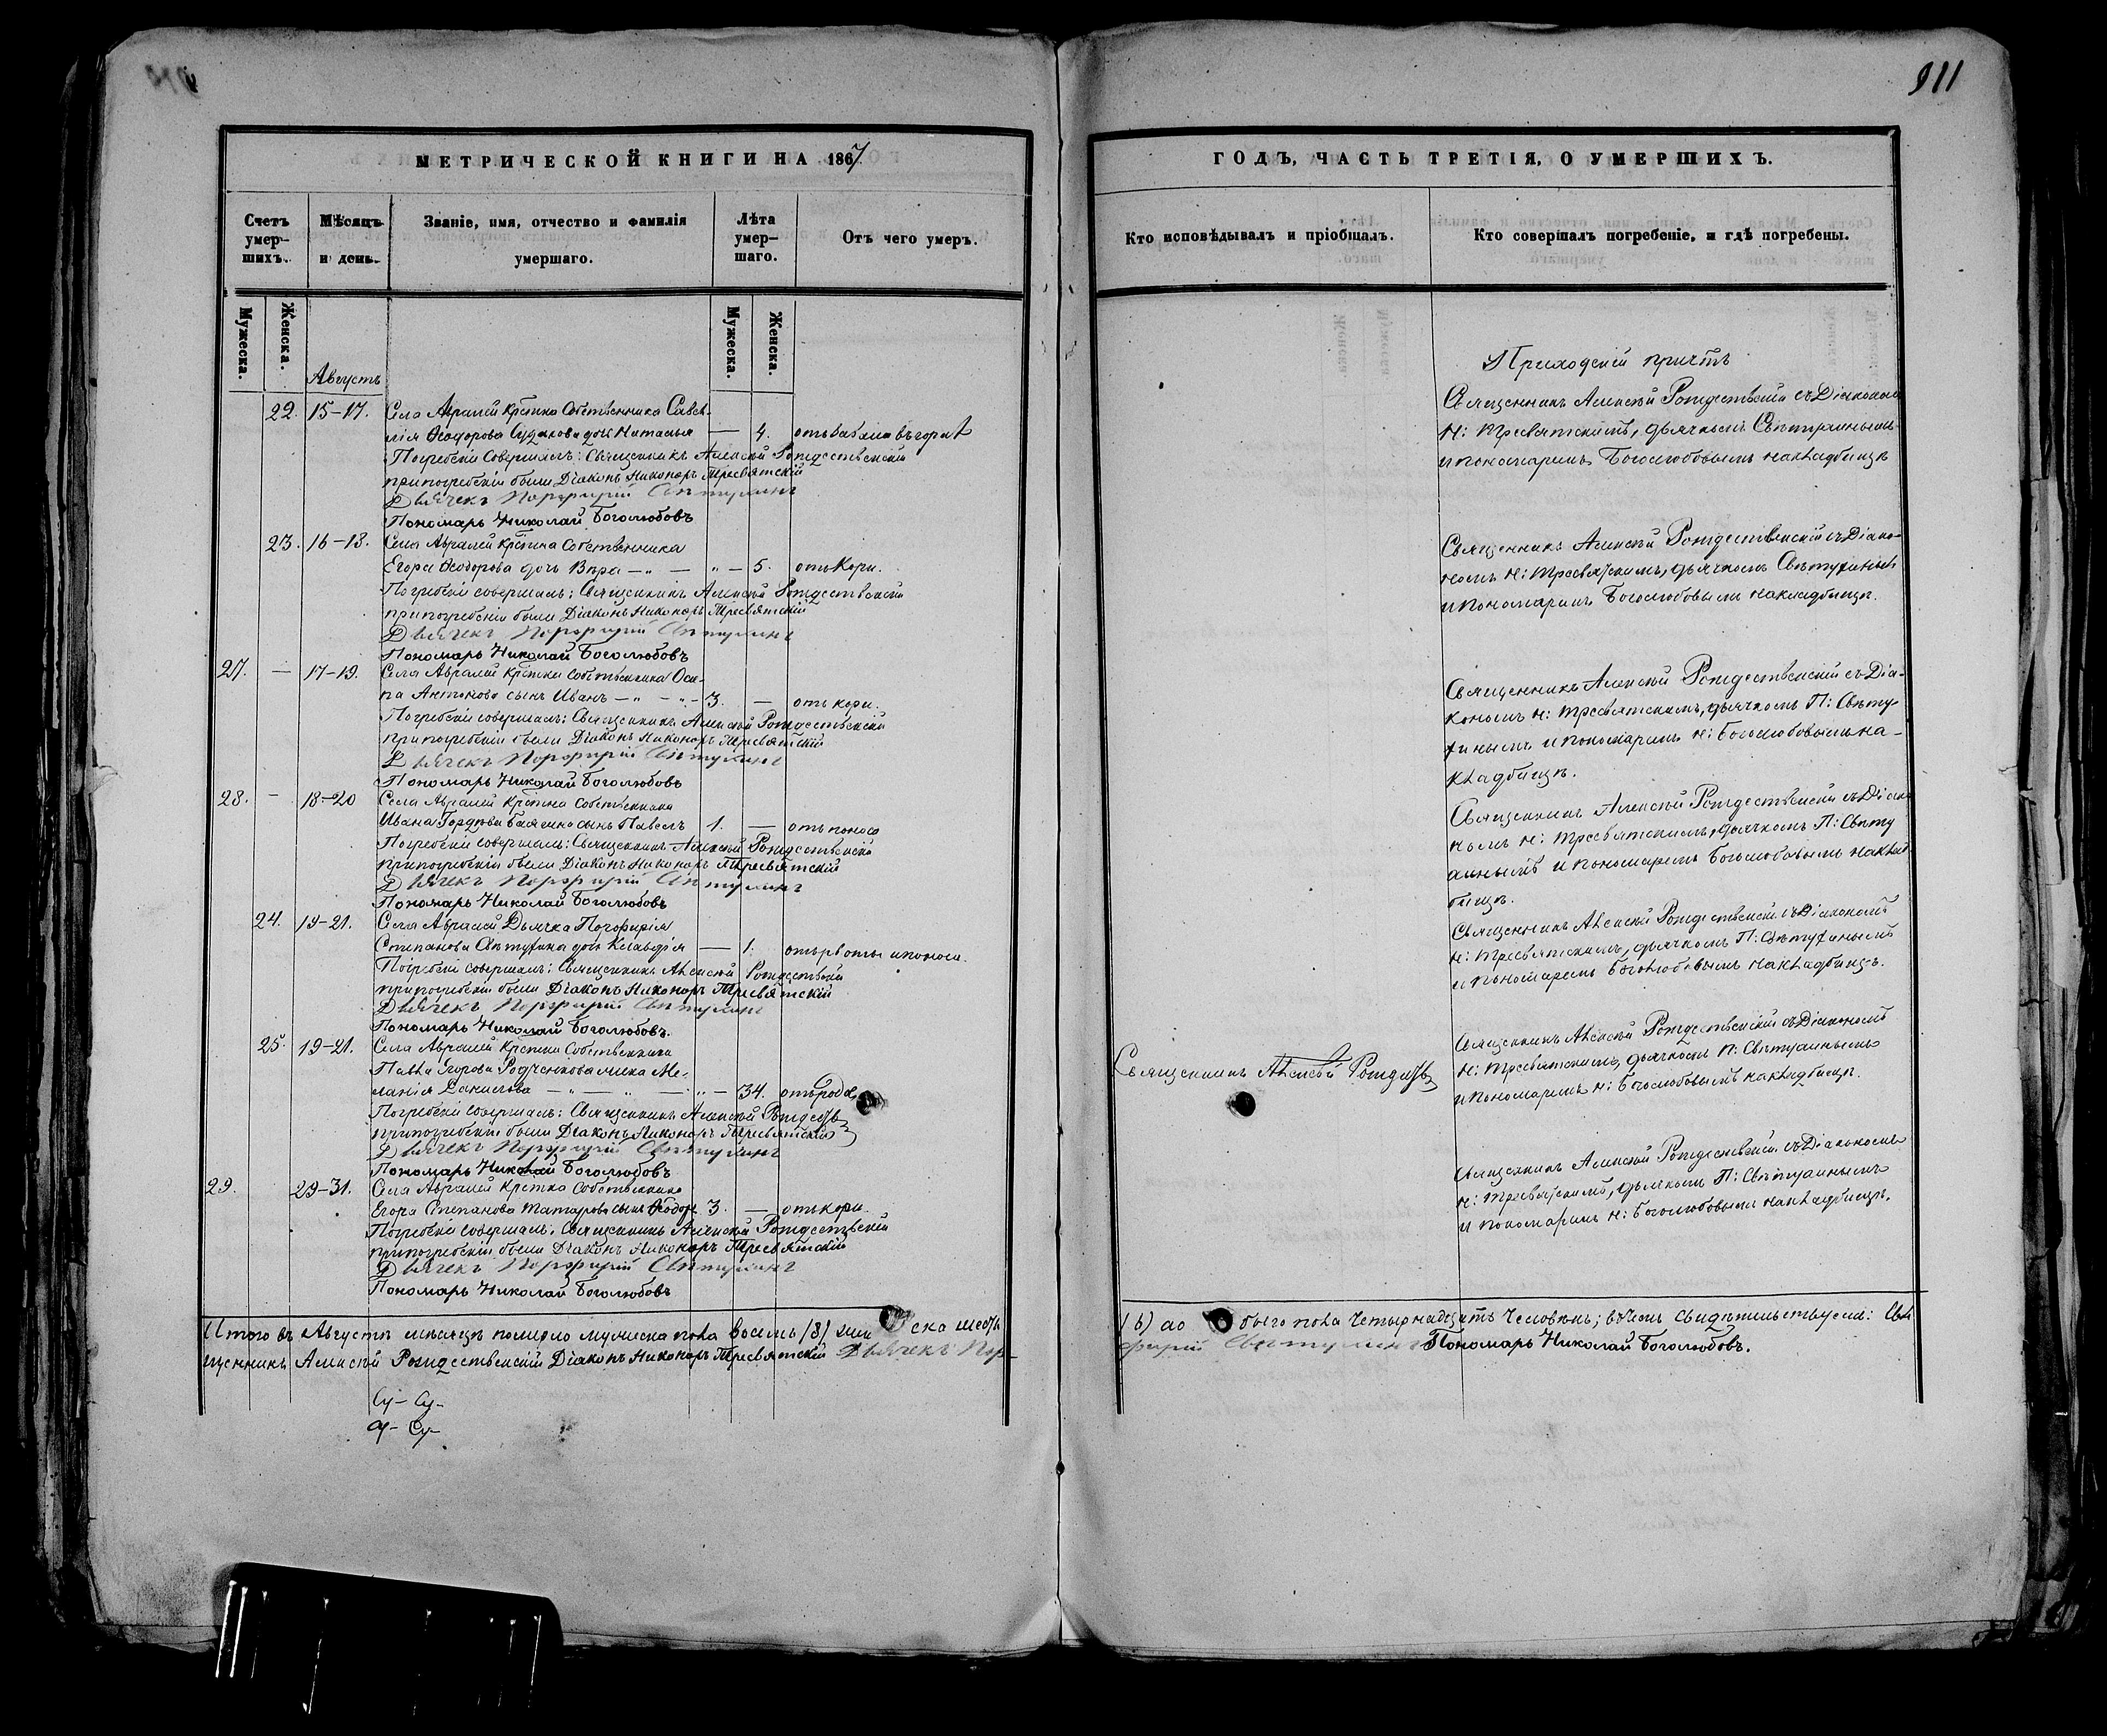 911
МЕТРИЧЕСКОЙ КНИГИ НА 1867
Счетъ умер-шихъ.
Мѣсяцъ и день.
Званіе, имя, отчество и фамилія умершаго.
Лѣта умер-шаго.
Отъ чего умеръ.
Мужеска.
Женска.
Мужеска.
Женска.
Августъ
22. 15-17. Села Авралей Крестьна Собственника Савель-
лія Ѳеодорова дочь Наталья — 4.
Погребеніе совершалъ: Священникъ Алексѣй Рождественскій
при погребеніи были Діаконъ Никаноръ Тресвятскій
Дьячекъ Порфирій
Пономарь Николай Боголюбовъ
23. 16-18. Села Авралей Крестьна Собственника
Егора Ѳеодорова дочь Вѣра — " — " — 5. отъ кори.
Погребеніе совершалъ: Священникъ Алексѣй Рождественскій
при погребеніи были Діаконъ Никаноръ Тресвятскій
Дьячекъ Порфирій
Пономарь Николай Боголюбовъ
27. — 17-19. Села Авралей Крестьна Собственника Оси-
па Антонова сынъ Иванъ — " — " — 3. — отъ кори.
Погребеніе совершалъ: Священникъ Алексѣй Рождественскій
при погребеніи были Діаконъ Никаноръ Тресвятскій
Дьячекъ Порфирій
Пономарь Николай Боголюбовъ
28. — 18-20 Села Авралей Крестьна Собственника
Ивана сынъ Павелъ 1. — отъ поноса
Погребеніе совершалъ: Священникъ Алексѣй Рождественскій
при погребеніи были Діаконъ Никаноръ Тресвятскій
Дьячекъ Порфирій
Пономарь Николай Боголюбовъ
24. 19-21. Села Авралей Дьячка Порфирія
Степанова дочь Клавдія — 1. отъ рвоты и поноса.
Погребеніе совершалъ: Священникъ Алексѣй Рождественскій
при погребеніи были Діаконъ Никаноръ Тресвятскій
Дьячекъ Порфирій
Пономарь Николай Боголюбовъ.
25. 19-21. Села Авралей Крестьна Собственника
Павла Егорова жена Ме-
ланія Данилова — " — " — " — 34. отъ родов
Погребеніе совершалъ: Священникъ Алексѣй Рождеств
при погребеніи были Діаконъ Никаноръ Тресвятскій
Дьячекъ Порфирій
Пономарь Николай Боголюбовъ
29. 29-31. Села Авралей Крестьна Собственника
Егора Степанова Татарова сынъ Ѳеодоръ 3. — отъ кори.
Погребеніе совершалъ: Священникъ Алексѣй Рождественскій
при погребеніи были Діаконъ Никаноръ Тресвятскій
Дьячекъ Порфирій
Пономарь Николай Боголюбовъ
Итого въ Августѣ мѣсяцѣ померло мужеска пола восемь /8/ жен ска шесть
щенникъ Алексѣй Рождественскій Діаконъ Никаноръ Тресвятскій Дьячекъ Пор-
ГОДЪ, ЧАСТЬ ТРЕТІЯ, О УМЕРШИХЪ.
Кто исповѣдывалъ и пріобщалъ.
Кто совершалъ погребеніе, и гдѣ погребены.
Приходскій причтъ
Священникъ Алексѣй Рождественскій съ Діакономъ
Н: Тресвятскимъ, дьячкомъ
и пономаремъ Боголюбовымъ на кладбищѣ
Священникъ Алексѣй Рождественскій съ Діако-
номъ Н: Тресвятскимъ, дьячкомъ
и пономаремъ Боголюбовымъ на кладбищѣ.
Священникъ Алексѣй Рождественскій съ Діа-
кономъ Н: Тресвятскимъ, дьячкомъ П:
и пономаремъ Н: Боголюбовымъ на-
кладбищѣ.
Священникъ Алексѣй Рождественскій съ Діако
номъ Н: Тресвятскимъ, дьячкомъ П:
и пономаремъ Боголюбовымъ на клад
бищѣ.
Священникъ Алексѣй Рождественскій съ Діакономъ
Н: Тресвятскимъ, дьячкомъ П:
и пономаремъ Боголюбовымъ на кладбищѣ.
Священникъ Алексѣй Рождеств
Священникъ Алексѣй Рождественскій съ Діакономъ
Н: Тресвятскимъ, дьячкомъ П:
и пономаремъ Н: Боголюбовымъ на кладбищѣ.
Священникъ Алексѣй Рождественскій съ Діакономъ
Н: Тресвятскимъ, дьячкомъ П:
и пономаремъ Н: Боголюбовымъ на кладбищѣ.
/6/ а о боего пола четырнадцать человѣкъ; въ чемъ свидѣтельствуемъ: Свя
фирій Пономарь Николай Боголюбовъ.